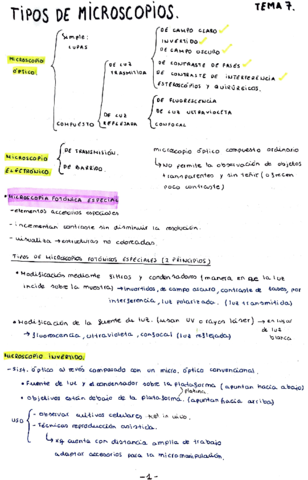 TIPOS DE MICROSCOPIOS.
TEMA 7.
MICROSCOPIO ÓPTICO.
Simple: LUPAS
COMPUESTO
DE LUZ TRANSMITIDA
DE CAMPO CLARO
INVERTIDO
DE CAMPO OSCURO
DE CONTRASTE DE FASES
DE CONTRASTE DE INTERFERENCIA
ESTEROSCÓPIOS Y QUIRÚRGICOS.
DE LUZ REFLEJADA
DE FLUORESCENCIA
DE LUZ ULTRAVIOLETA
CONFOCAL
MICROSCOPIO ELECTRÓNICO.
DE TRANSMISIÓN.
DE BARRIDO.
microscopio óptico compuesto ordinario
↳ No permite la observación de objetos
transparentes y sin teñir (ofrecen
poco contraste)
• MICROSCOPÍA FOTÓNICA ESPECIAL
- elementos accesorios especiales
- incrementan contraste sin disminuir la resolución.
- visualiza → estructuras no coloreadas.
TIPOS DE MICROSCOPIOS FOTÓNICOS ESPECIALES (2 PRINCIPIOS)
• Modificación mediante filtros y condensadores (manera en que la luz
incide sobre la muestra) → invertidos, de campo oscuro, contraste de fases, por
interferencia, luz polarizada. (luz transmitida)
• Modificación de la fuente de luz. (usan UV o rayos láser) → en lugar de luz blanca
↳ fluorescencia, ultravioleta, confocal (luz reflejada)
MICROSCOPIO INVERTIDO.
- Sist. óptico al revés comparado con un micro. óptico convencional.
• Fuente de luz y condensador sobre la plataforma (apuntan hacia abajo)
platina
• objetivos están debajo de la plataforma. (apuntan hacia arriba)
USO
- observar cultivos celulares in vivo.
- Técnicas reproducción asistida.
↳ xq cuenta con distancia amplia de trabajo
adaptar accesorios para la micromanipulación.
-1-